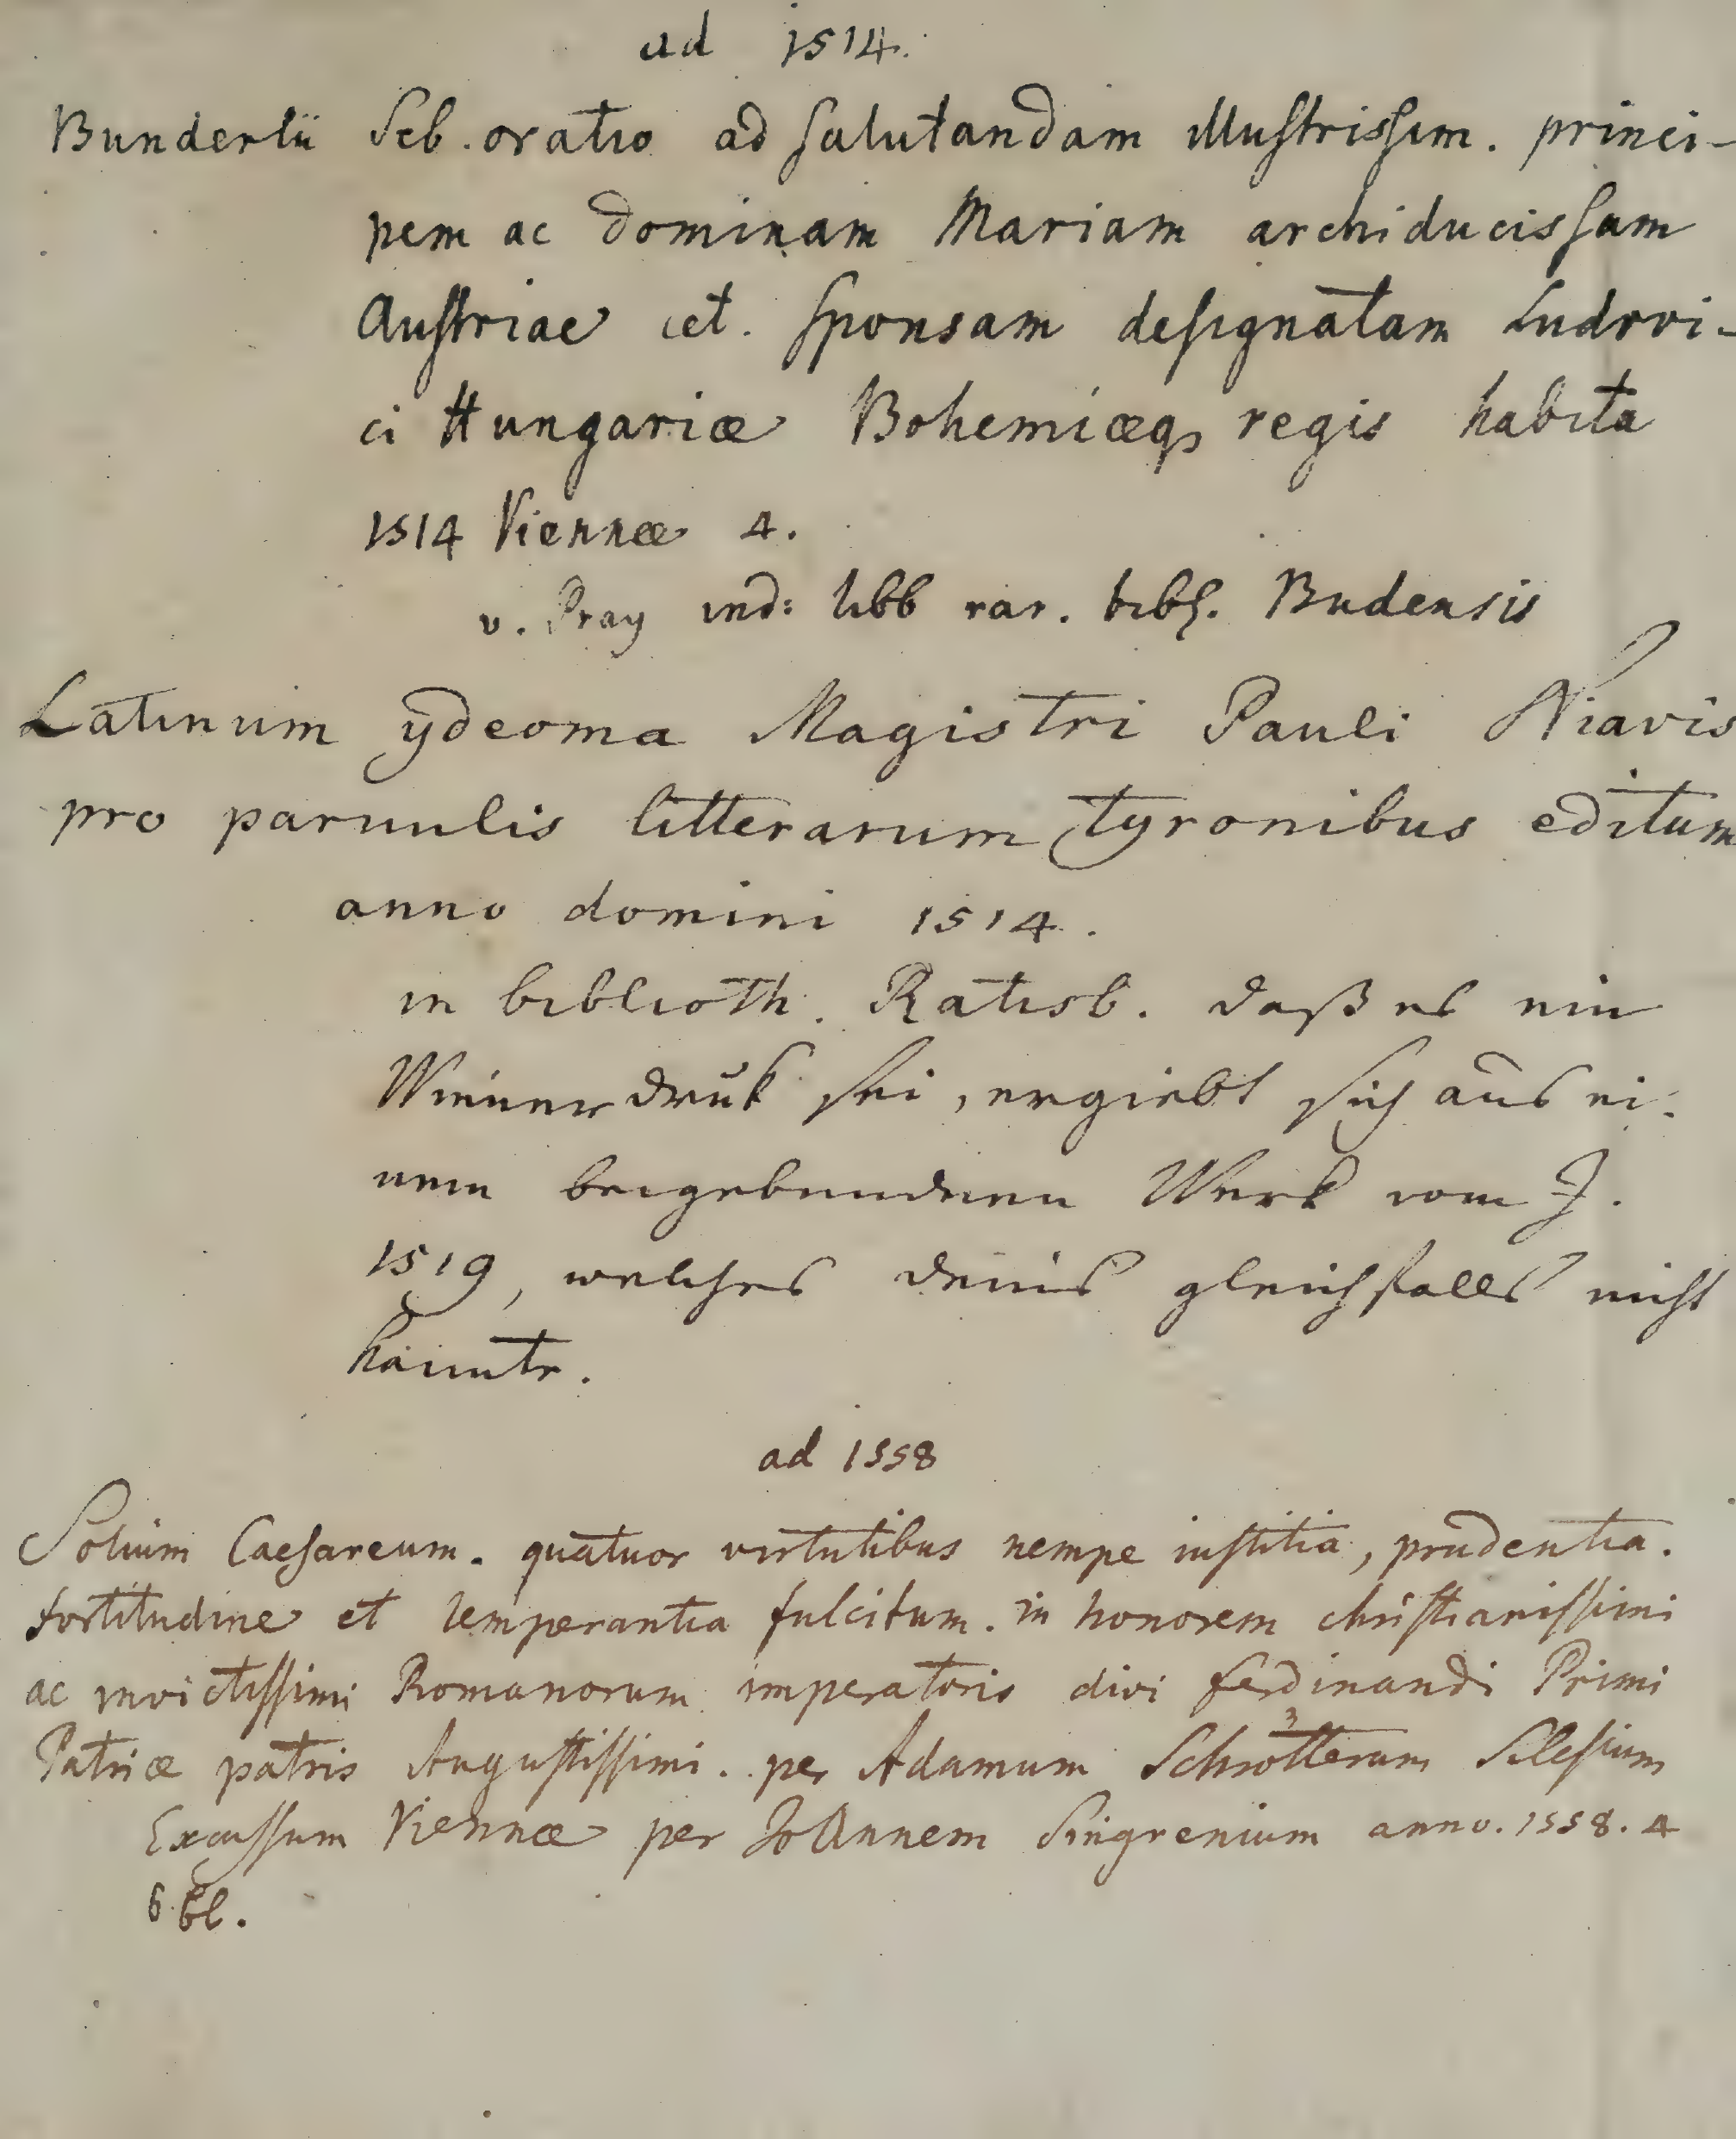 ad 1514.
Bunderlii Seb. oratio ad salutandam illustrissim. princi-
pem ac dominam Mariam archiducissam
Austriae cet. sponsam designatam Ludovi-
ci Hungariæ Bohemiæq3 regis habita
1514 Viennæ 4.
v. Pray ind: libb rar. bibl. Budensis
Latinum ydeoma Magistri Pauli Niavis
pro paruulis litterarum tyronibus editum
anno domini 1514.
in biblioth. Ratisb. daß es ein
Wiener druk sei, ergiebt sich aus ei-
nem beigebundnen Werk vom J.
1519, welches denis gleichfalls nicht
kannte.
ad 1558
Solium Caesareum. quatuor virtutibus nempe iustitia, prudentia.
fortitudine et temperantia fulcitum. in honorem christianissimi
ac invictissimi Romanorum imperatoris divi ferdinandi Primi
Patriæ patris Augustissimi. per Adamum Schrötterum Silesium
Excussum Viennæ per Joannem Singrenium anno. 1558. 4
6 bl.